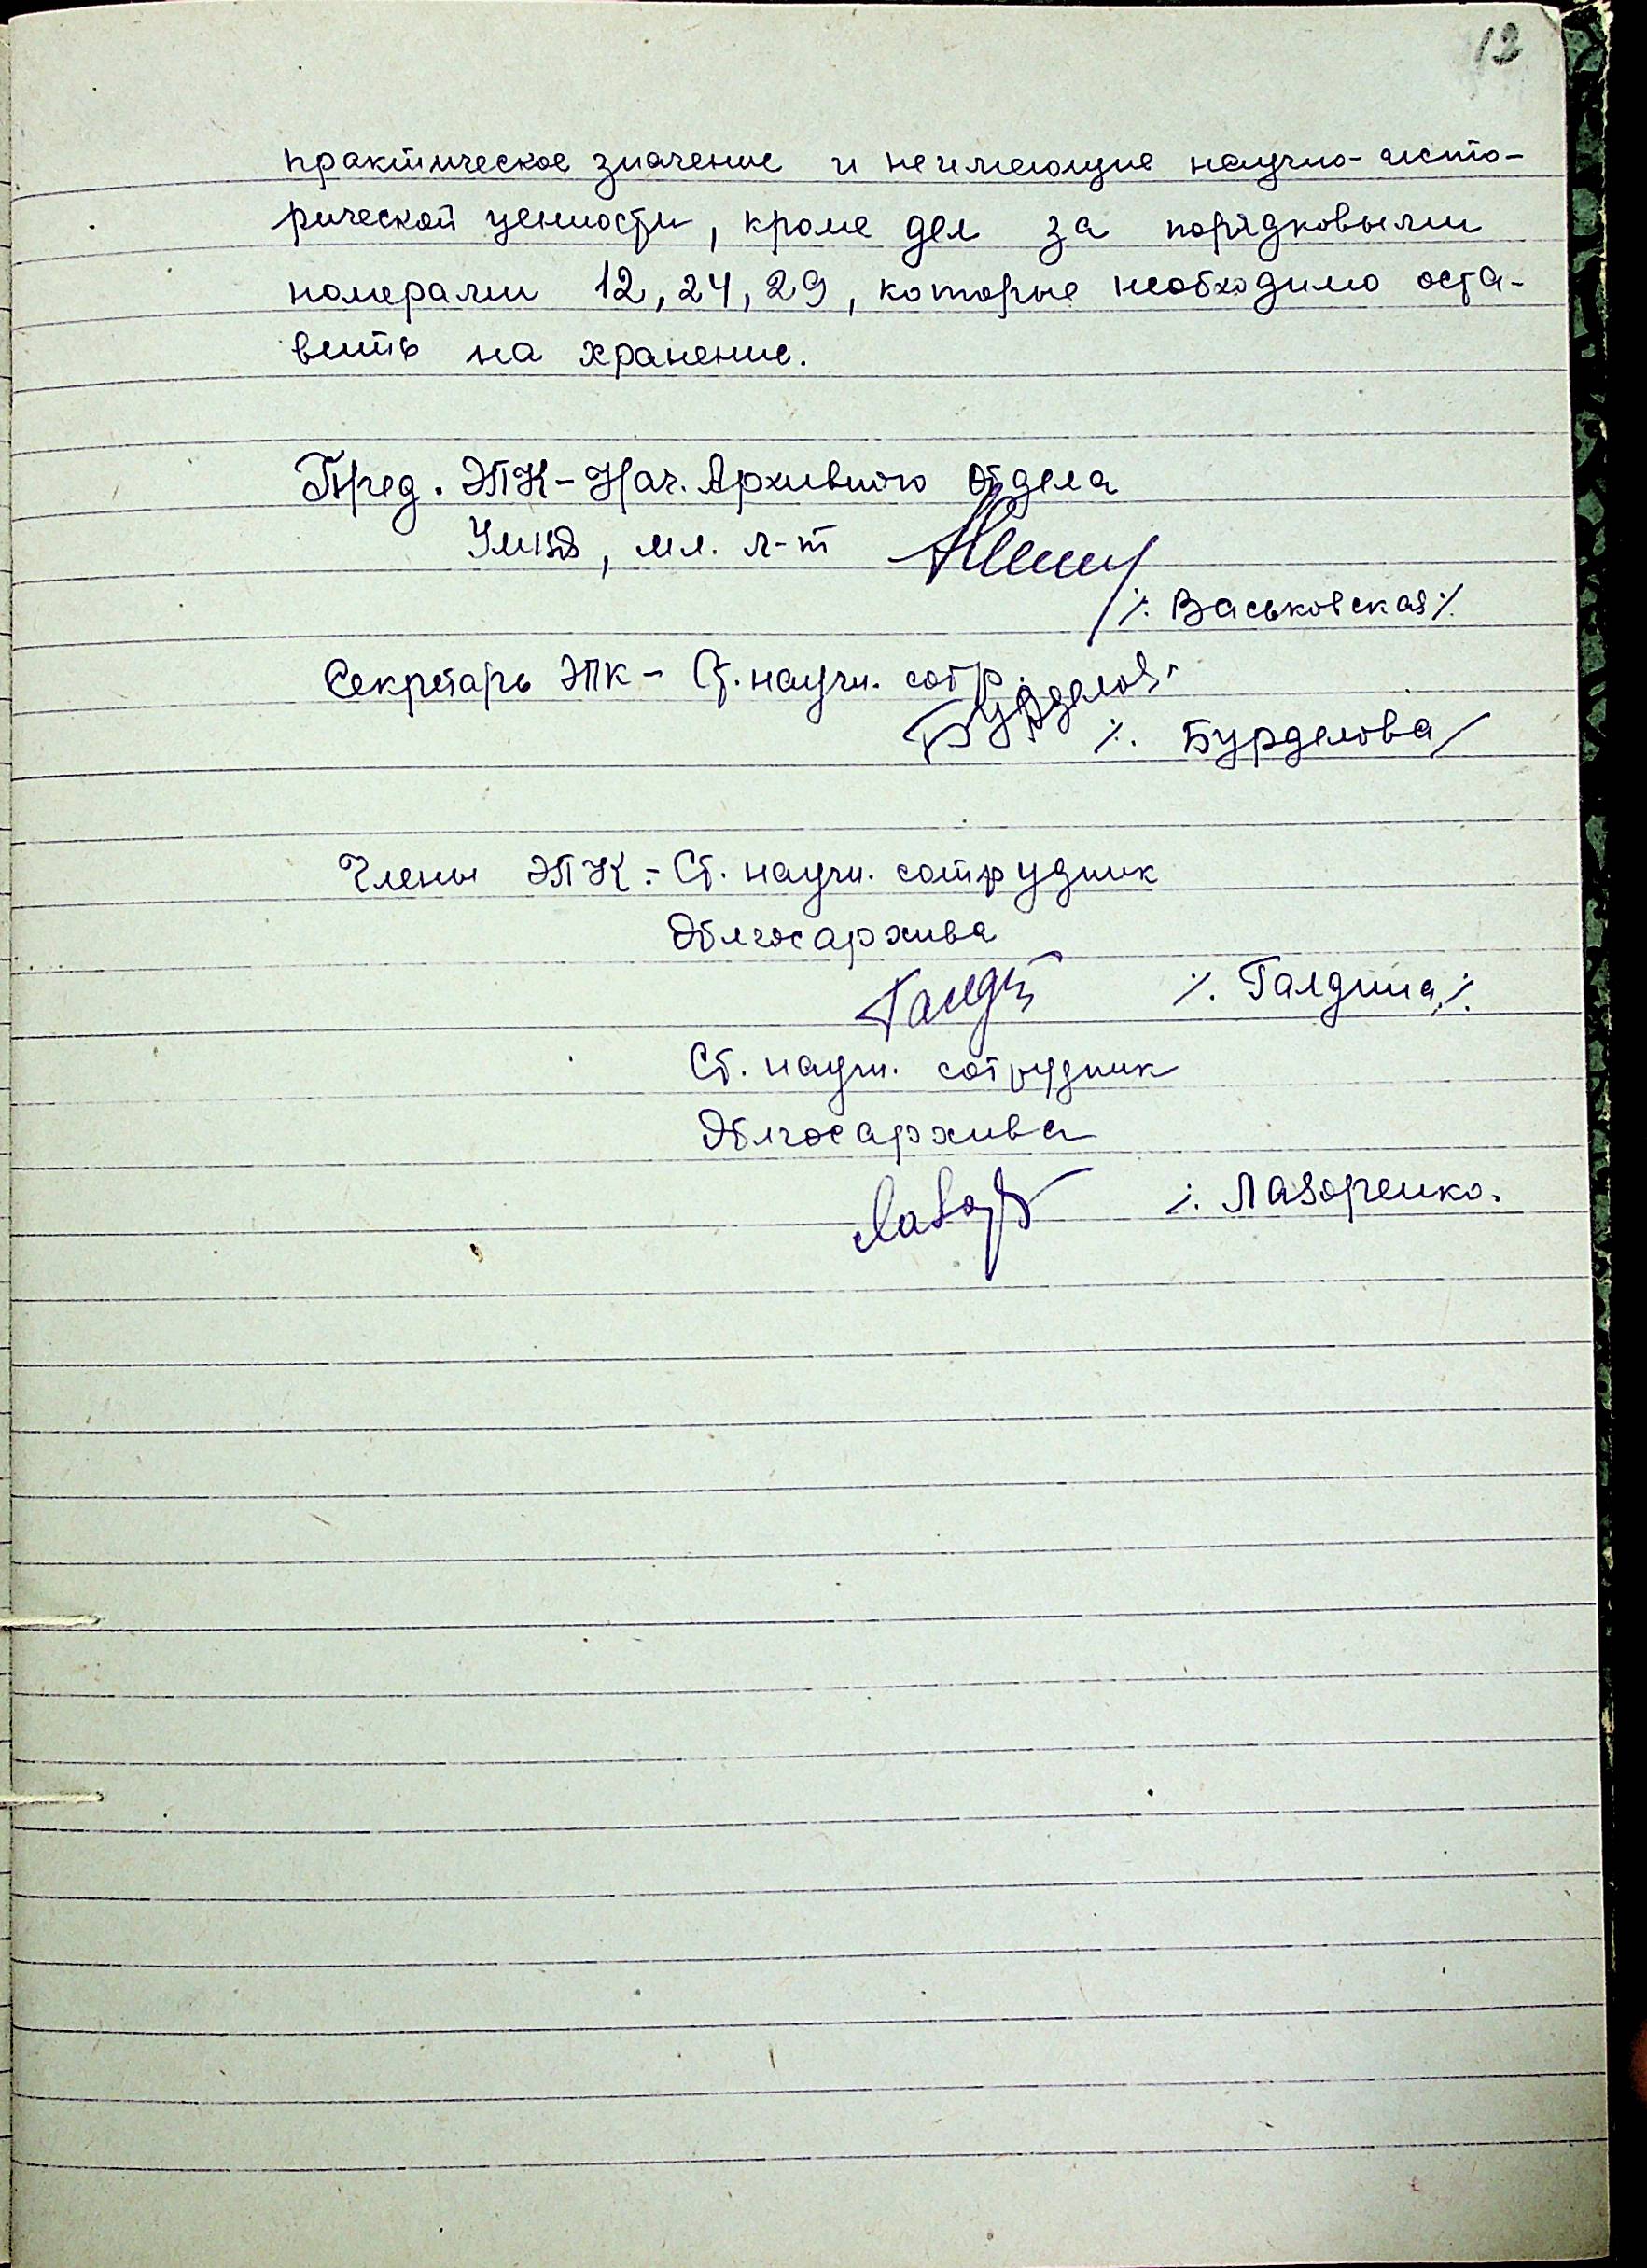 13
практическое значение и неимеющие научно-исто-
рической ценности, кроме дел за порядковыми
номерами 12, 24, 29, которые необходимо оста-
вить на хранение.
Пред. ЭПК - Нач. Архивного отдела
УМВД, мл. л-т
/. Васьковская /.
Секретарь ЭПК - Ст. научн. сотр.
Бурделова
/. Бурделова/
Члены ЭПК: Ст. научн. сотрудник
Облгосархива
/. Галдина /.
Ст. научн. сотрудник
Облгосархива
/. Лазоренко.